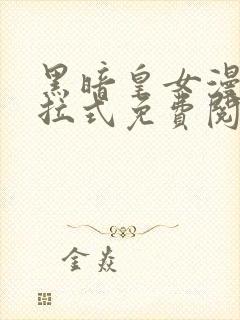 黑暗皇女漫
拉式免費閱
金焱